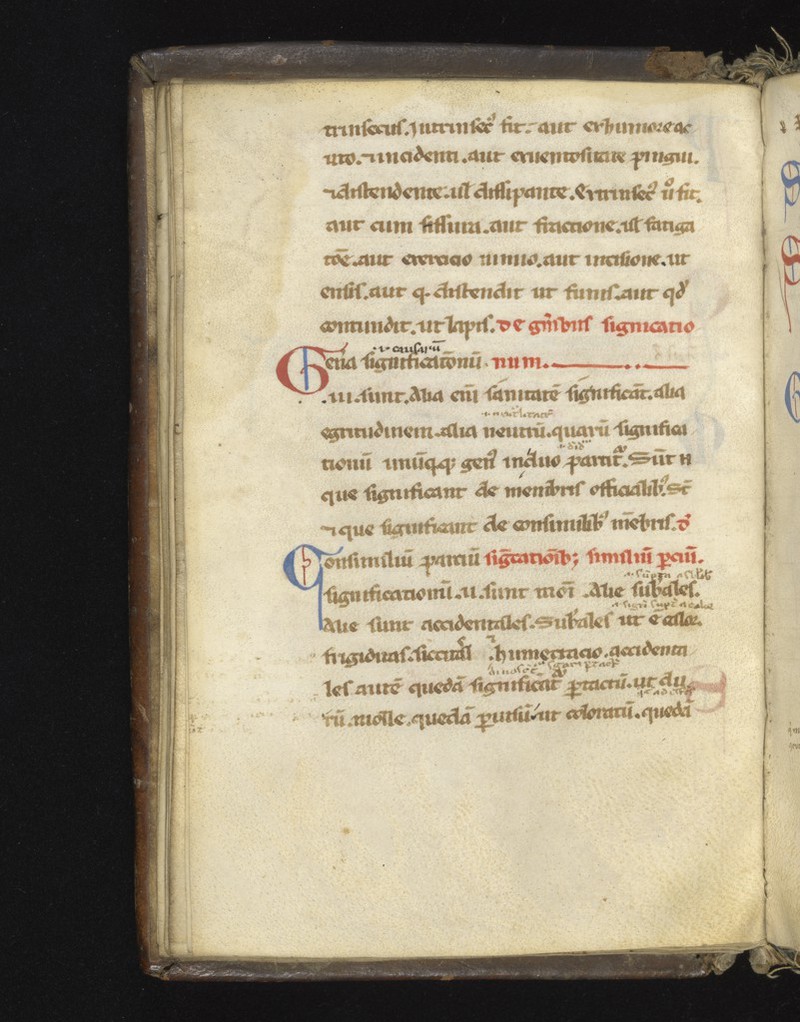 trinsecus. ⁊ intrinsec᷒ fit. aut ex humore ac
uto. ⁊ incidenti. aut ex uentositate ꝑingui.
⁊ distendente. ul᷑ dissipante. Extrinsec᷒ u͛o fit.
aut cum fissura. aut fractione. ul᷑ fatiga
tōe. aut exercicio nimio. aut incisione. ut
ensis. aut q. distendit ut funis. aut qd᷒
contundit. ut lapis. De gn̄ibus significatio
Genera significationū. num.
.iii. sunt. Alia eni᷑ sanitatē significāt. alia
egritudinem. alia neutrū. quarū significa
tionū unūqꝙ gen᷒ in duo ꝑtit᷑. Sūt n̄
que significant de membris officialib᷒. Sēt
⁊ que significant de consimilib᷒ mēbris. D᷒
Consimiliū ꝑtium sig᷑cationib; similiū ꝑciū.
significationū .ii. sunt modi. Alie sub᷑ales.
Alie sunt accidentales. Sub᷑ales ut ē calor.
frigiditas. siccitas humectacio. accidenta
les autē quedā significāt ꝑ tactū. ut du
rū. molle. quedā ꝑ uisū. ut coloratū. quedā